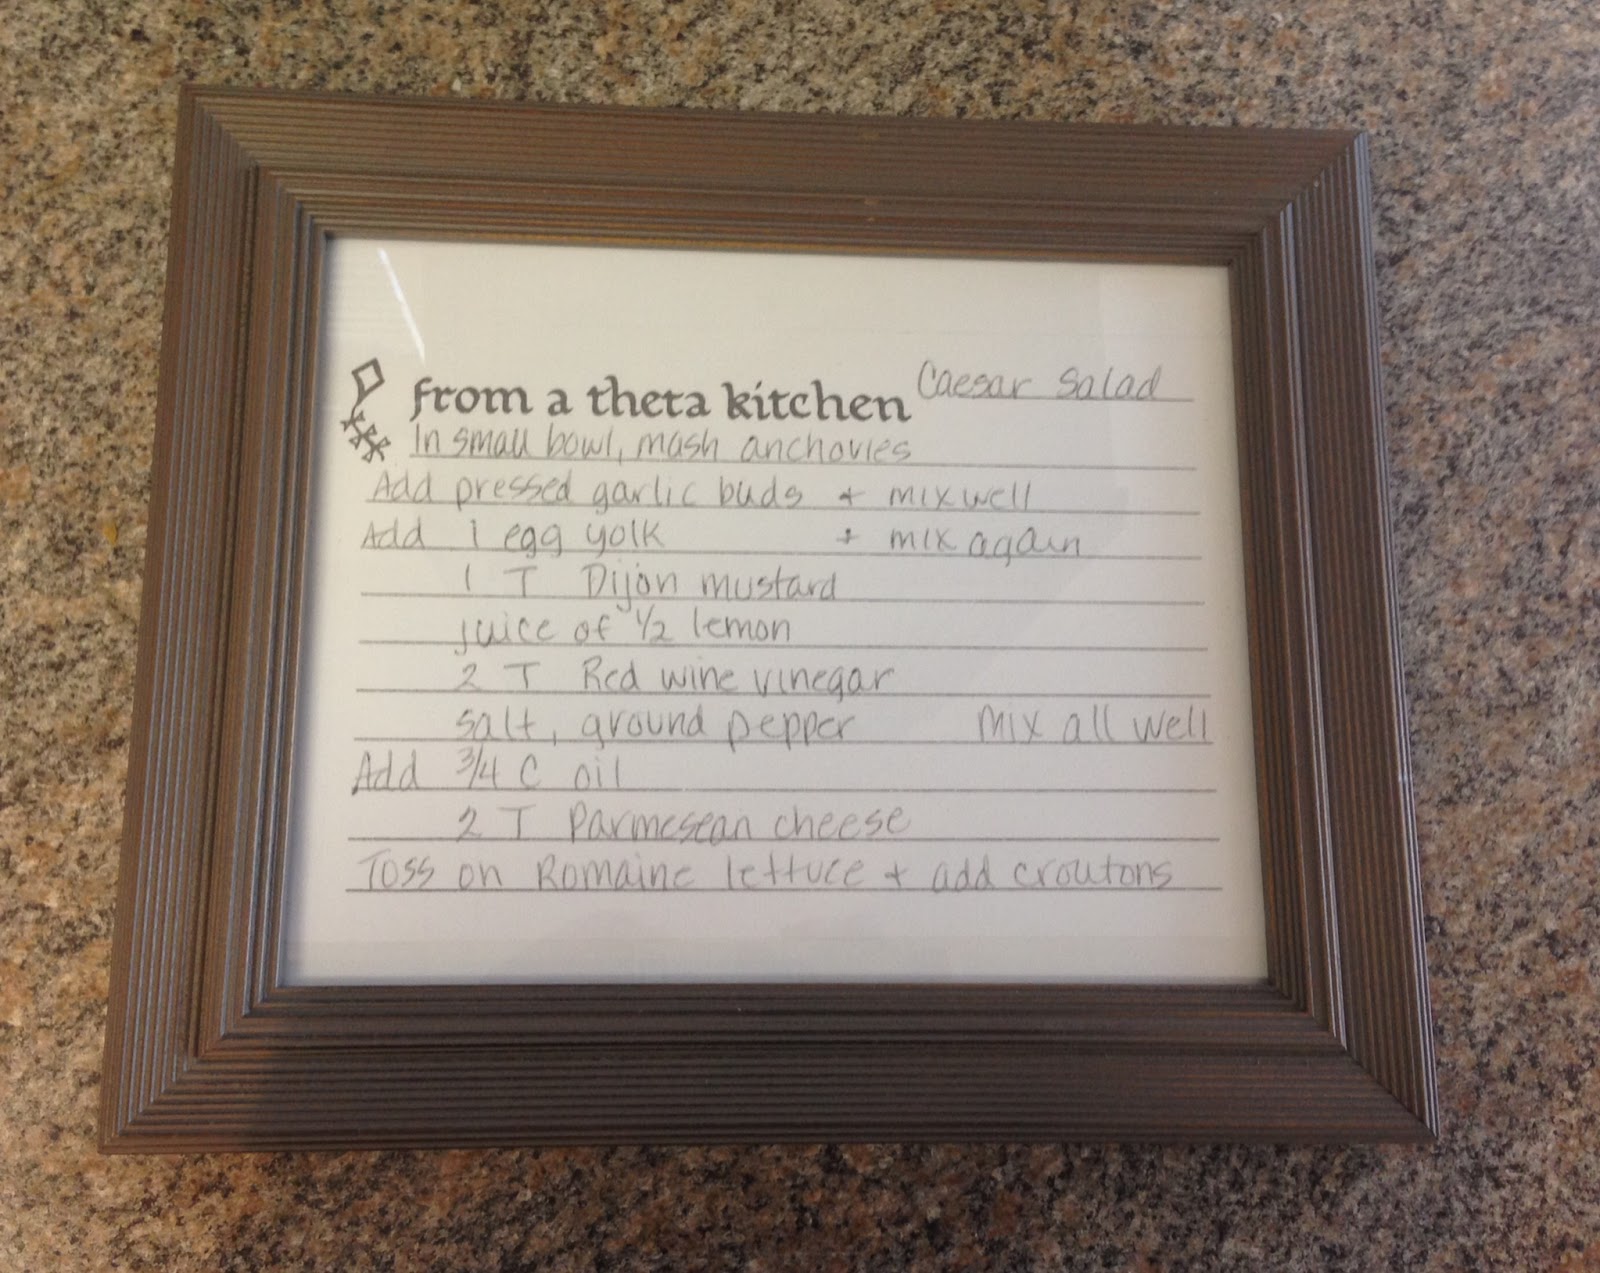 from a theta kitchen Caesar Salad
In small bowl, mash anchovies
Add pressed garlic buds + mix well
Add 1 egg yolk + mix again
1 T Dijon mustard
juice of 1/2 lemon
2 T Red wine vinegar
salt, ground pepper Mix all well
Add 3/4 C oil
2 T Parmesean cheese
Toss on Romaine lettuce + add croutons